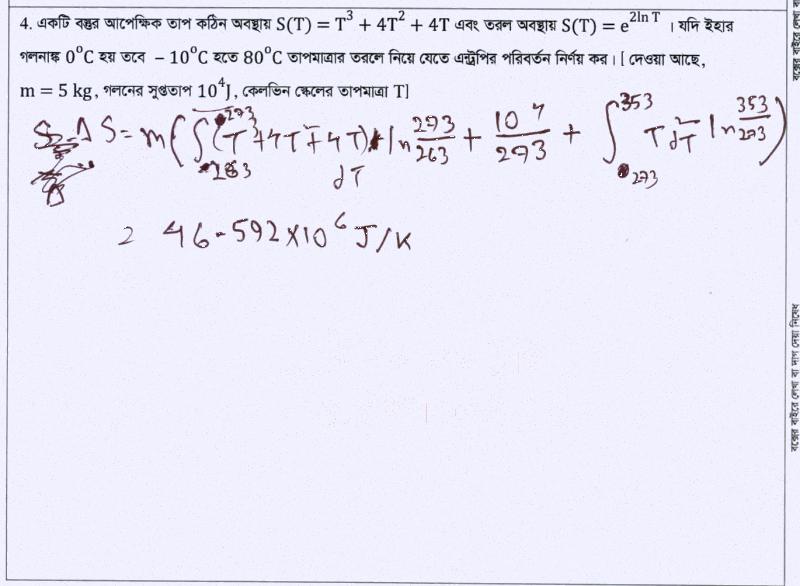 4. একটি বস্তুর আপেক্ষিক তাপ কঠিন অবস্থায় S(T) = T³ + 4T² + 4T এবং তরল অবস্থায় S(T) = e^(2ln T) । যদি ইহার
গলনাঙ্ক 0°C হয় তবে − 10°C হতে 80°C তাপমাত্রার তরলে নিয়ে যেতে এন্ট্রপির পরিবর্তন নির্ণয় কর। [ দেওয়া আছে,
m = 5 kg, গলনের সুপ্ততাপ 10⁴J, কেলভিন স্কেলের তাপমাত্রা T]
ΔS = m(∫₂₆₃²⁷³(T³+4T²+4T)dT ln 273/263 + 10⁴/273 + ∫₂₇₃³⁵³ T² dT ln 353/273)
= 46.592×10⁶ J/K
বক্সের বাইরে লেখা বা দাগ দেয়া নিষেধ